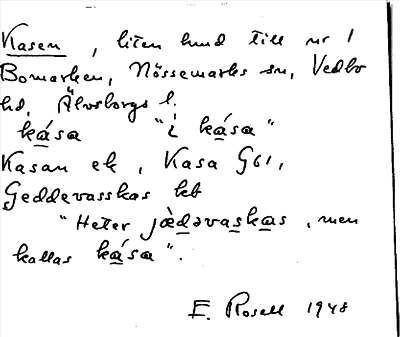 Kasen, liten lund till nr 1
Bomarken, Nössemarks sn, Vedbo
hd, Älvsborgs l.
ká̱sa "i ká̱sa"
Kasan ek, Kasa G61,
Geddevasskas kb
"Heter jæ̀ḏəvas̱ka̱s, men
kallas ká̱sa".
E. Rosell 1948